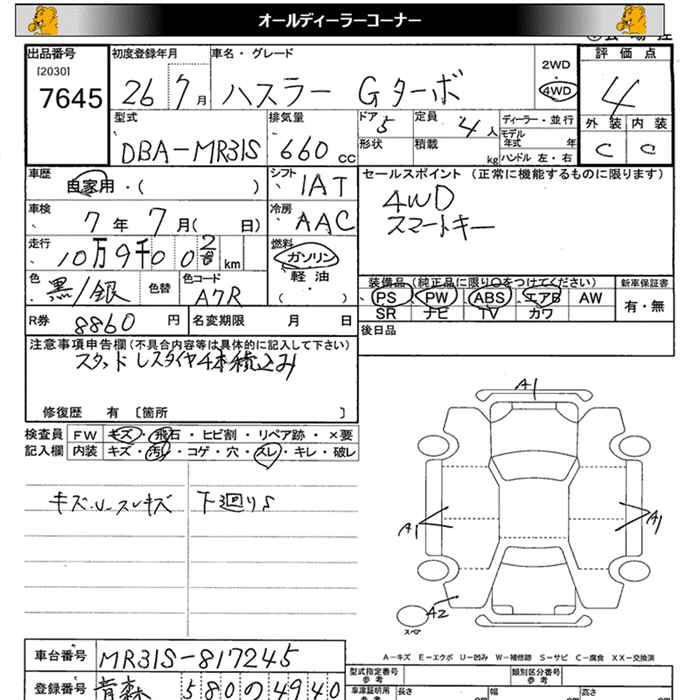 オールディーラーコーナー
出品番号 [2030] 7645
初度登録年月 26 7月
車名・グレード ハスラー Gターボ
2WD 4WD
評価点 4
外装 C 内装 C
型式 DBA-MR31S
排気量 660 cc
ドア 5 定員 4人
形状 積載 kg
ディーラー・並行
モデル年式 年
ハンドル 左・右
車歴 自家用・( )
シフト IAT
セールスポイント (正常に機能するものに限ります)
4WD
スマートキー
車検 7年 7月( 日)
冷房 AAC
走行 10万9千0 0 km
燃料 ガソリン
軽油
( )
色 黒/銀 色替
色コード A7R
装備品 (純正品に限り○をつけてください)
PS PW ABS エアB AW
SR ナビ TV カワ
新車保証書 有・無
R券 8860 円 名変期限 月 日
後日品
注意事項申告欄 (不具合内容等は具体的に記入して下さい)
スタッドレスタイヤ4本積込み
修復歴 有 [箇所 ]
検査員記入欄
FW キズ・飛石・ヒビ割・リペア跡・×要
内装 キズ・汚れ・コゲ・穴・スレ・キレ・破レ
キズ・U・スレキズ 下廻りS
A1
A1 A1
A2
スペア
A-キズ E-エクボ U-凹み W-補修跡 S-サビ C-腐食 XX-交換済
車台番号 MR31S-817245
登録番号 青森 580 の 4940
型式指定番号 参考 類別区分番号 参考
車庫証明用 参考 長さ cm 幅 cm 高さ cm